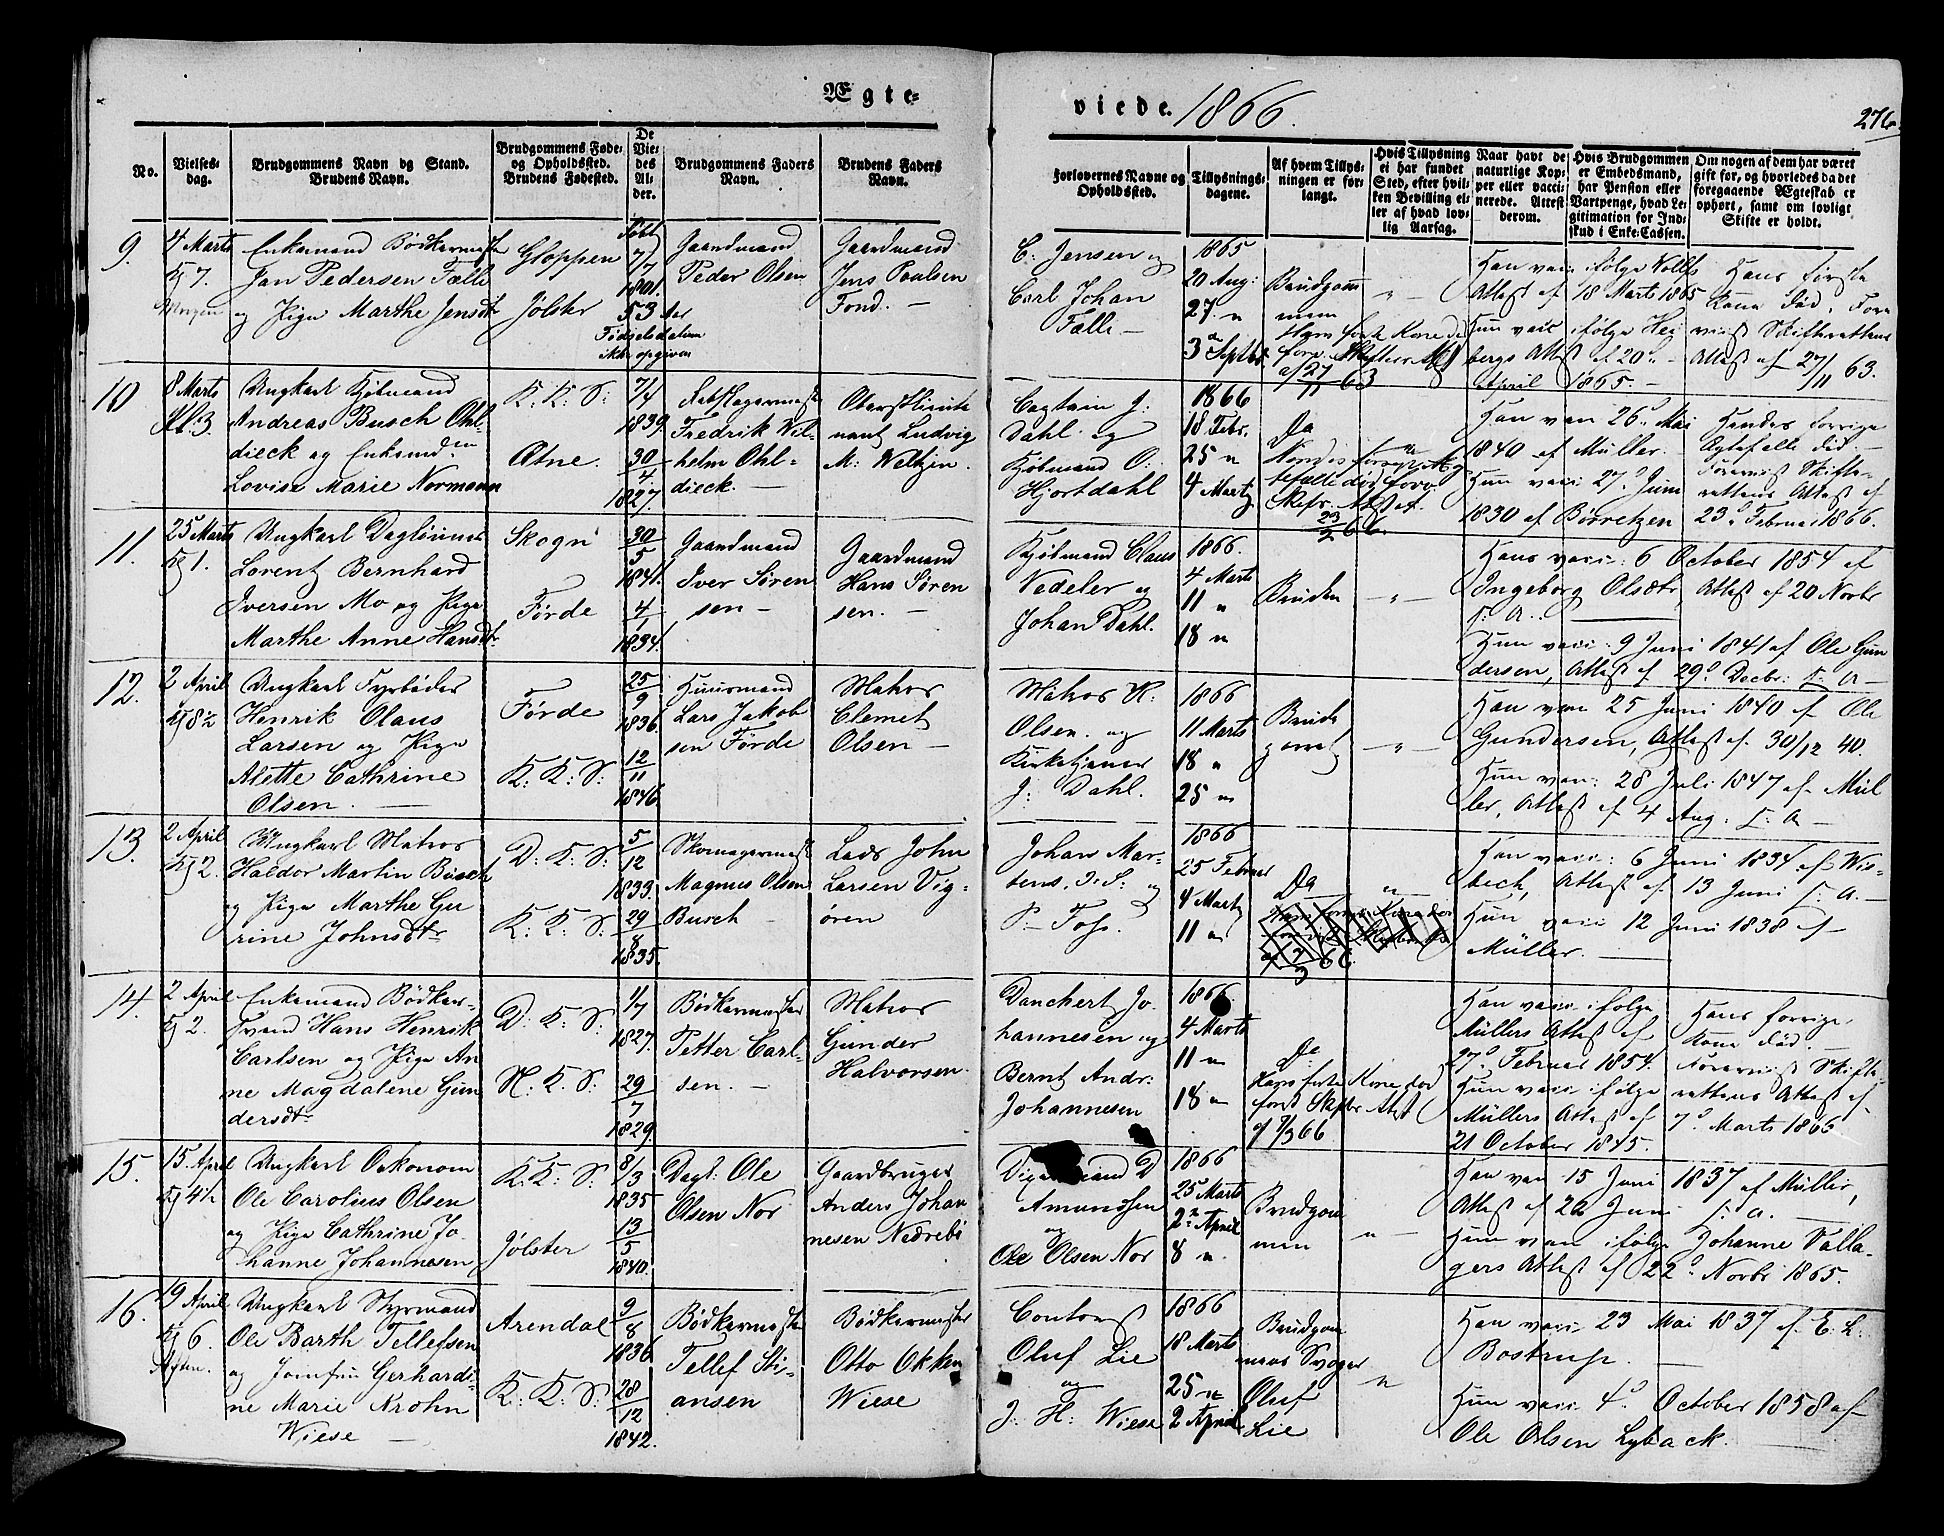 Ægte-
viede. 1866.
276
No.
Vielses-
dag.
Brudgommens Navn og Stand.
Brudens Navn.
Brudgommens Føde-
og Opholdssted.
Brudens Fødested.
De
Vie-
des
Al-
der.
Brudgommens Faders
Navn.
Brudens Faders
Navn.
Forlovernes Navne og
Opholdssted.
Tillysnings-
dagene.
Af hvem Tillys-
ningen er for-
langt.
Hvis Tillysning
ei har fundet
Sted, efter hvil-
ken Bevilling el-
ler af hvad lov-
lig Aarsag.
Naar havt de
naturlige Kop-
per eller vacci-
nerede. Attest
derom.
Hvis Brudgommen
er Embedsmand,
har Pension eller
Vartpenge, hvad Le-
gitimation for Ind-
skud i Enke-Cassen.
Om nogen af dem har været
gift før, og hvorledes da det
foregaaende Ægteskab er
ophørt, samt om lovligt
Skifte er holdt.
9.
4 Marts
Kl 7.
Enkemand Bödkermester
Jan Pedersen Fælle
og Pige Marthe Jensdtr
Gloppen
Jölster
Födt
7/7
1801.
53 Aar
Födselsdatum
ikke opgiven
Gaardmand
Peder Olsen
Gaardmand
Jens Paulsen
Fond. —
C. Jensen og
Carl Johan
Fælle —
1865
20 Aug:
27 "
3 Septbr
Brudgom
men
Hans förste Kone död
forev. Skifter. Attest
af 27/11 63
" —
Han vacc. ifölge Wolffs
Attest af 18 Marts 1865
Hun vacc. ifölge Hei
bergs Attest af 20de
April 1865. —
Hans förste
Kone död. Fore
viist Skifterettens
Attest af 27/11 63.
10
8 Marts
Kl: 3.
Ungkarl Kjöbmand
Andreas Busch Ohl-
dieck og Enkemd.en
Lovise Marie Normann
K: K: S:
Ætne.
7/4
1839
30/4
1827.
Rebslagermester
Fredrik Wil-
helm Ohl-
dieck. —
Oberstlieute
nant Ludvig
M: Weltzin.
Captain J:
Dahl. og
Kjöbmand O:
Hjortdahl
1866
18 Febr.
25 "
4 Marts
Da
Skifr. Attest af
23/2 66.
Han vacc. 26de Mai
1840 af Müller. —
Hun vacc: 27de Juni
1830 af Börretzen
Hendes forrige
Ægtefælle död —
Foreviist Skifte-
rettens Attest af
23de Februar 1866.
11.
25 Marts
Kl 1.
Ungkarl Daglönner
Lorentz Bernhard
Iversen Mo og Pige
Marthe Anne Hansdtr
Skogn
Förde
30/5
1841.
4/1
1834.
Gaardmand
Iver Sören
sen —
Gaardmand
Hans Sören
sen. —
Kjöbmand Claus
Vedeler og
Johan Dahl.
1866.
4 Marts
11 "
18 "
Bruden
— " —
Han vacc: 6 October 1854 af
Ingeborg Olsætr, Attest af 20 Novbr
s: A. —
Hun vacc: 9 Juni 1841 af Ole Gun
dersen, Attest af 29de Decbr: s: A —
12.
2 April
Kl 8½
Ungkarl Fyrböder
Henrik Olaus
Larsen og Pige
Alette Cathrine
Olsen. —
Förde
K: K: S:
25/9
1836.
12/11
1846.
Huusmand
Lars Jakob
sen Förde
Matros
Clemet
Olsen —
Matros H:
Olsen. og
Kirketjener
J: Dahl.
1866
11 Marts
18 "
25 "
Brude
parret
— " —
Han vacc 25 Juni 1840 af Ole
Gundersen, Attest af. 30/12 40.
Hun vacc: 28 Juli 1847 af Mül
ler, Attest af 4 Aug: s: A —
13.
2 April
Kl 2.
Ungkarl Matros
Haldor Martin Busch
og Pige Marthe Gu
rine Johnsdtr
D: K: S:
K: K: S:
5/12
1833.
29/8
1835.
Skomagermester
Magnus Olsen
Busch —
Lods John
Larsen Vig-
ören
Johan Mar-
tens, D. S: og
P. Foss.
1866
25 Februar
4 Marts
11 "
Da
"
Han vacc: 6 Juni 1834 af Wis-
bech, Attest af 13 Juni s: A. —
Hun vacc 12 Juni 1838 af
Müller. —
14.
2 April
Kl 2.
Enkemand Bödker-
svend Hans Henrik
Carlsen og Pige An
ne Magdalene Gun
dersdtr
D: K: S:
N: K: S:
1/7
1827.
29/7
1829.
Bödkermester
Petter Carl-
sen. —
Matros
Gunder
Halvorsen.
Danchert Jo
hannesen og
Bernt Andr:
Johannesen
1866.
4 Marts
11 "
18 "
Da
Hans förste Kone död
forev. Skifter. Attest
af 7/3 66
Han vacc. ifölge
Müllers Attest af
27de Februar 1854.
Hun vacc. ifölge
Müllers Attest af
21 October 1845.
Hans forrige
Kone död. —
Foreviist Skifte
rettens Attest af
7de Marts 1866
15.
15 April
Kl 4½
Ungkarl Oekonom
Ole Carolius Olsen
og Pige Cathrine Jo-
hanne Johannesen
K: K: S:
Jölster
8/3
1835
13/5
1840.
Dagl: Ole
Olsen Nor
Gaardbruger
Anders Johan
nesen Nedrebö
Amundsen
og
Ole Olsen Nor
1866
25 Marts
2den April
8 "
Brudgom
men
" —
Han vacc 15 Juni 1837 af Müller,
Attest af 20 Juni s: A. —
Hun vacc ifölge Johanne Valla-
gers Attest af 22de Novbr 1865.
16.
19 April
Kl 6
Aften.
Ungkarl Styrmand
Ole Barth Tellefsen
og Jomfru Gerhardi-
ne Marie Krohn
Wiese —
Arendal
K: K: S:
9/8
1836
28/12
1842.
Bödkermester
Tellef Sti-
ansen
Bödkermester
Otto Okken
Wiese
Contorist
Oluf Lie
og
J: H: Wiese
1866
18 Marts
25 "
2 April
Brudgom
mens Svoger
Oluf
Lie
"
Han vacc: 23 Mai 1837 af E. L:
Bostrup. —
Hun vacc: 4de October 1858 af
Ole Olsen Lyback.